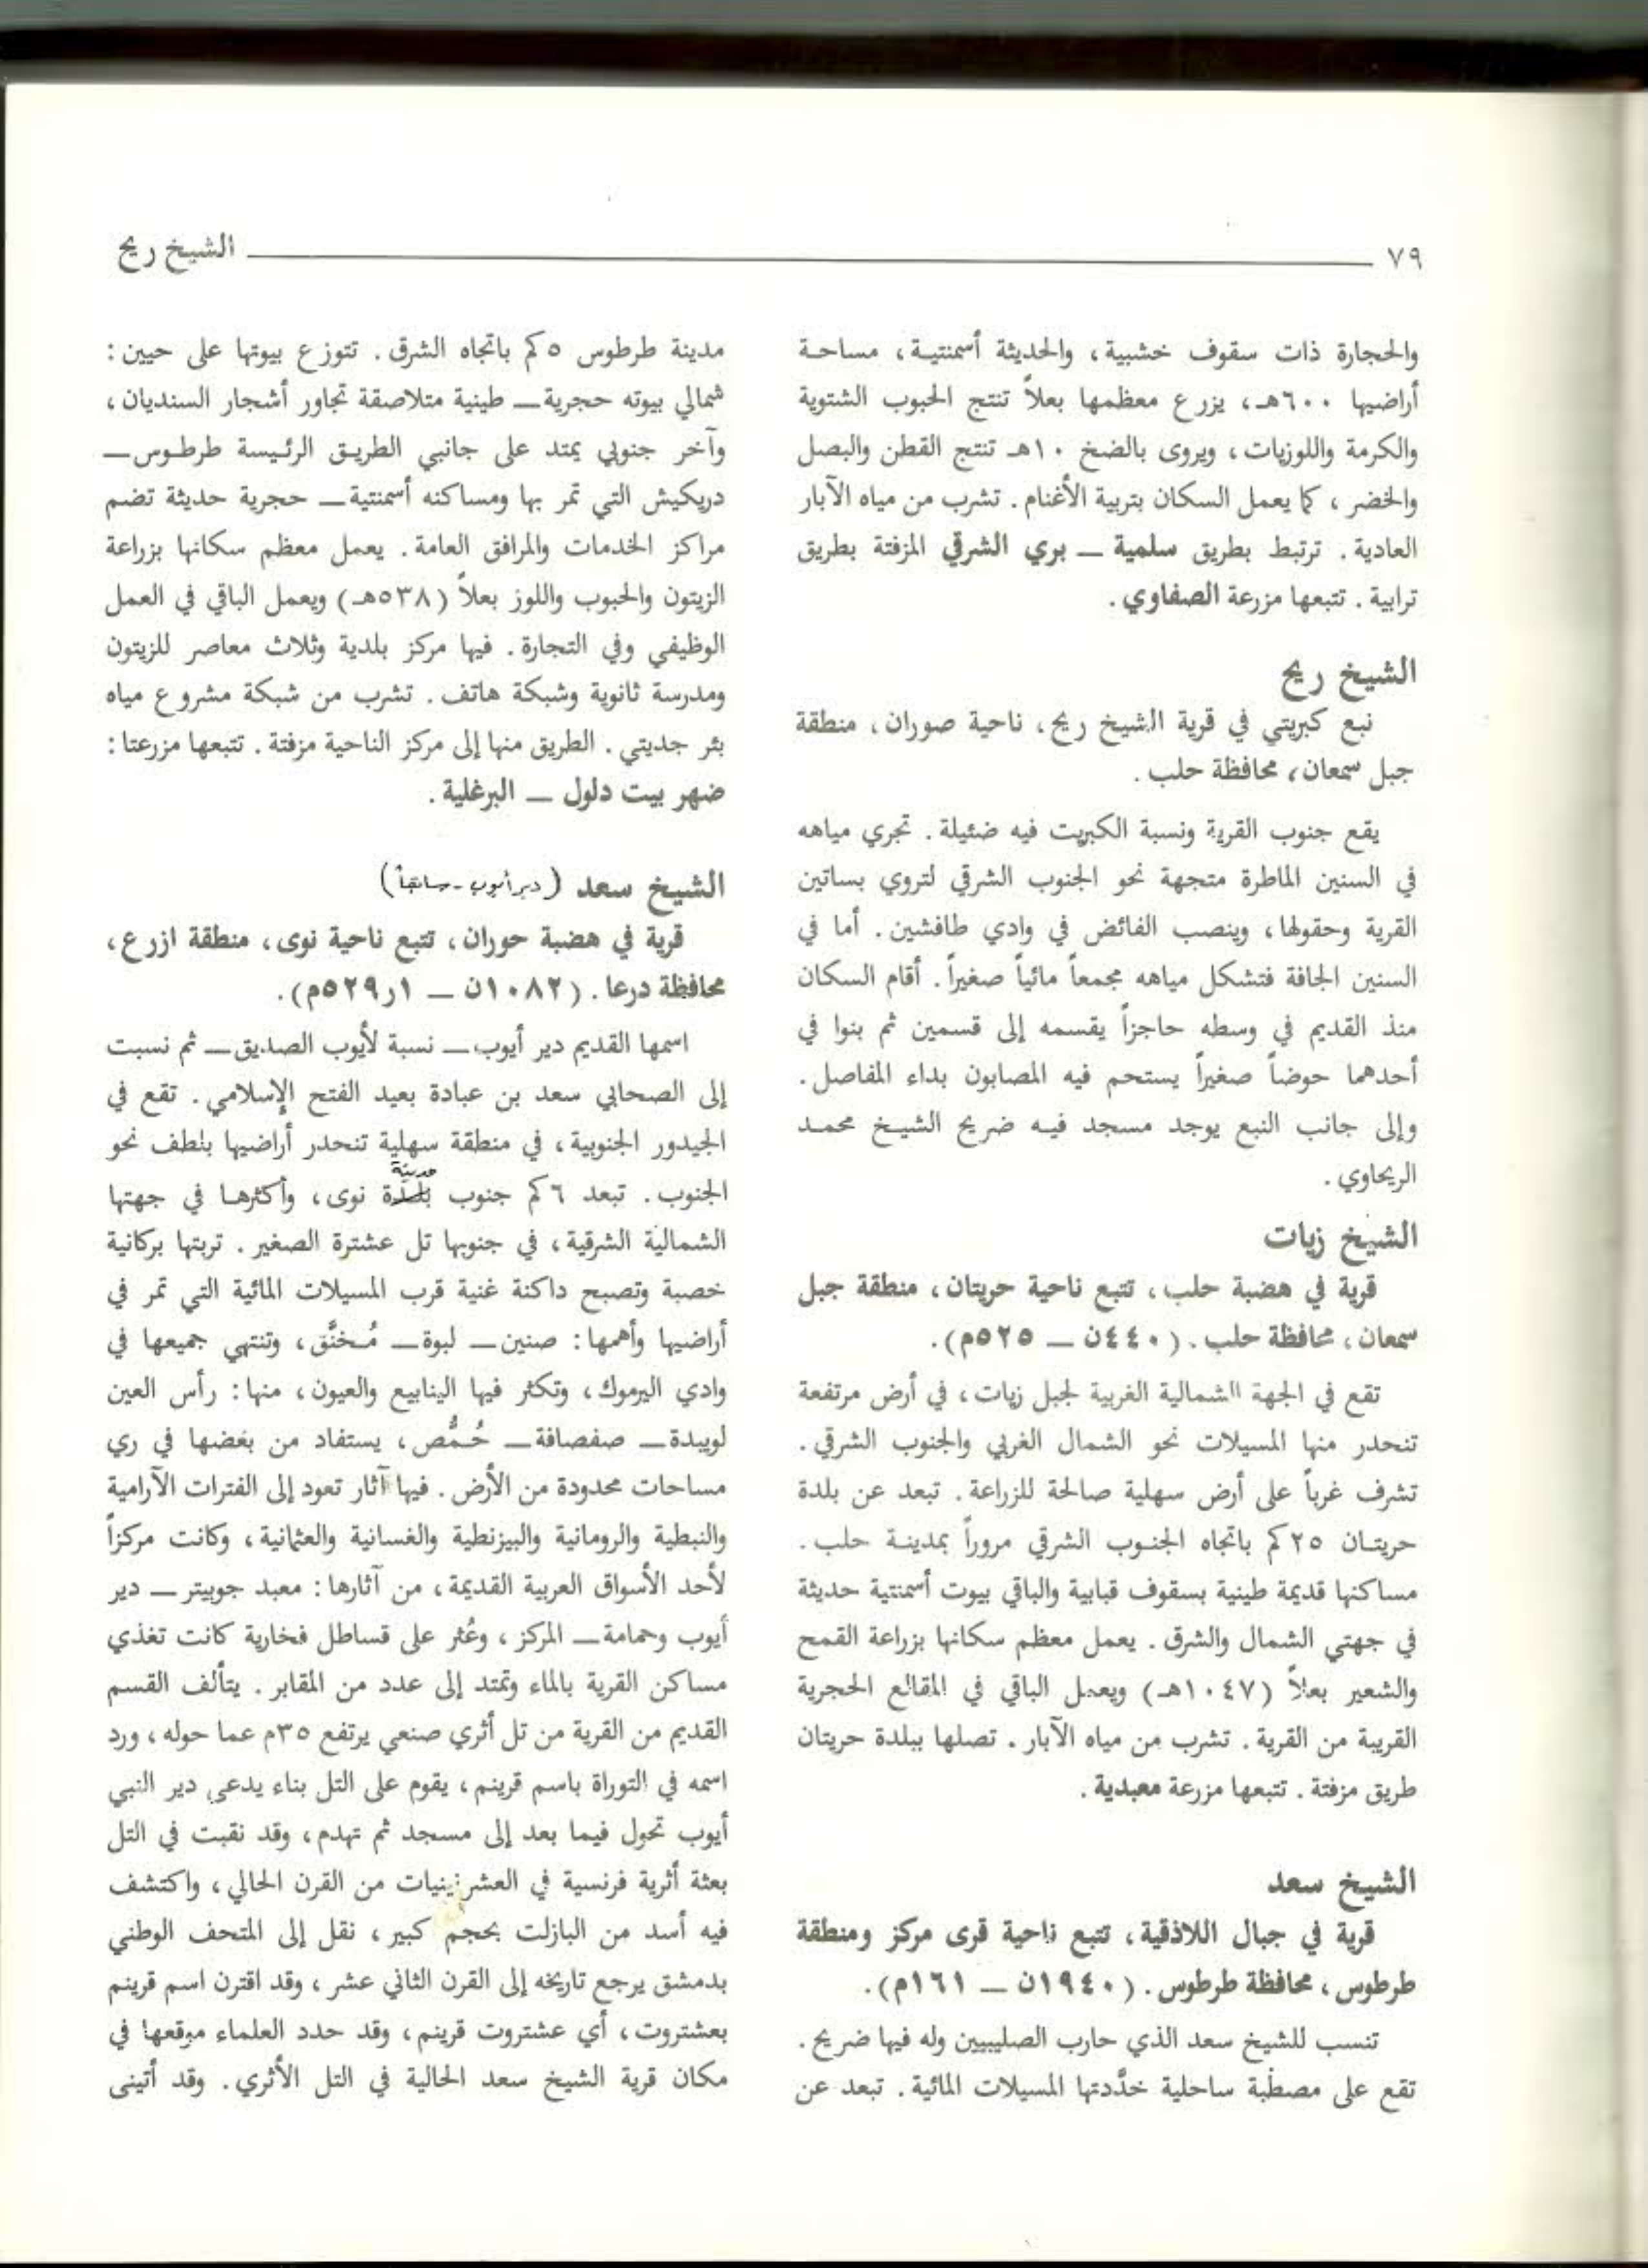 ٧٩ الشيخ ريح
والحجارة ذات سقوف خشبية، والحديثة أسمنتية، مساحة
أراضيها ٦٠٠هـ، يزرع معظمها بعلاً تنتج الحبوب الشتوية
والكرمة واللوزيات، ويروى بالضخ ١٠هـ تنتج القطن والبصل
والخضر، كما يعمل السكان بتربية الأغنام. تشرب من مياه الآبار
العادية. ترتبط بطريق سلمية — بري الشرقي المزفتة بطريق
ترابية. تتبعها مزرعة الصفاوي.
الشيخ ريح
نبع كبريتي في قرية الشيخ ريح، ناحية صوران، منطقة
جبل سمعان، محافظة حلب.
يقع جنوب القرية ونسبة الكبريت فيه ضئيلة. تجري مياهه
في السنين الماطرة متجهة نحو الجنوب الشرقي لتروي بساتين
القرية وحقولها، وينصب الفائض في وادي طافشين. أما في
السنين الجافة فتشكل مياهه مجمعاً مائياً صغيراً. أقام السكان
منذ القديم في وسطه حاجزاً يقسمه إلى قسمين ثم بنوا في
أحدهما حوضاً صغيراً يستحم فيه المصابون بداء المفاصل.
وإلى جانب النبع يوجد مسجد فيه ضريح الشيخ محمد
الريحاوي.
الشيخ زيات
قرية في هضبة حلب، تتبع ناحية حريتان، منطقة جبل
سمعان، محافظة حلب. (٤٤٠ن — ٥٢٥م).
تقع في الجهة الشمالية الغربية لجبل زيات، في أرض مرتفعة
تنحدر منها المسيلات نحو الشمال الغربي والجنوب الشرقي.
تشرف غرباً على أرض سهلية صالحة للزراعة. تبعد عن بلدة
حريتان ٢٥كم باتجاه الجنوب الشرقي مروراً بمدينة حلب.
مساكنها قديمة طينية بسقوف قبابية والباقي بيوت أسمنتية حديثة
في جهتي الشمال والشرق. يعمل معظم سكانها بزراعة القمح
والشعير بعلاً (١٠٤٧هـ) ويعمل الباقي في المقالع الحجرية
القريبة من القرية. تشرب من مياه الآبار. تصلها ببلدة حريتان
طريق مزفتة. تتبعها مزرعة معبدية.
الشيخ سعد
قرية في جبال اللاذقية، تتبع ناحية قرى مركز ومنطقة
طرطوس، محافظة طرطوس. (١٩٤٠ن — ١٦١م).
تنسب للشيخ سعد الذي حارب الصليبيين وله فيها ضريح.
تقع على مصطبة ساحلية خدَّدتها المسيلات المائية. تبعد عن
مدينة طرطوس ٥كم باتجاه الشرق. تتوزع بيوتها على حيين:
شمالي بيوته حجرية — طينية متلاصقة تجاور أشجار السنديان،
وآخر جنوبي يمتد على جانبي الطريق الرئيسة طرطوس —
دريكيش التي تمر بها ومساكنه أسمنتية — حجرية حديثة تضم
مراكز الخدمات والمرافق العامة. يعمل معظم سكانها بزراعة
الزيتون والحبوب واللوز بعلاً (٥٣٨هـ) ويعمل الباقي في العمل
الوظيفي وفي التجارة. فيها مركز بلدية وثلاث معاصر للزيتون
ومدرسة ثانوية وشبكة هاتف. تشرب من شبكة مشروع مياه
بئر جديتي. الطريق منها إلى مركز الناحية مزفتة. تتبعها مزرعتا:
ضهر بيت دلول — البرغلية.
الشيخ سعد (دير أيوب - سابقاً)
قرية في هضبة حوران، تتبع ناحية نوى، منطقة ازرع،
محافظة درعا. (١٠٨٢ن — ١ر٥٢٩م).
اسمها القديم دير أيوب — نسبة لأيوب الصديق — ثم نسبت
إلى الصحابي سعد بن عبادة بعيد الفتح الإسلامي. تقع في
الجيدور الجنوبية، في منطقة سهلية تنحدر أراضيها بلطف نحو
مدينة
الجنوب. تبعد ٦كم جنوب بلدة نوى، وأكثرها في جهتها
الشمالية الشرقية، في جنوبها تل عشترة الصغير. تربتها بركانية
خصبة وتصبح داكنة غنية قرب المسيلات المائية التي تمر في
أراضيها وأهمها: صنين — لبوة — مُخنَّق، وتنتهي جميعها في
وادي اليرموك، وتكثر فيها الينابيع والعيون، منها: رأس العين
لويبدة — صفصافة — حُمُّص، يستفاد من بعضها في ري
مساحات محدودة من الأرض. فيها آثار تعود إلى الفترات الآرامية
والنبطية والرومانية والبيزنطية والغسانية والعثمانية، وكانت مركزاً
لأحد الأسواق العربية القديمة، من آثارها: معبد جوبيتر — دير
أيوب وحمامة — المركز، وعُثر على قساطل فخارية كانت تغذي
مساكن القرية بالماء وتمتد إلى عدد من المقابر. يتألف القسم
القديم من القرية من تل أثري صنعي يرتفع ٣٥م عما حوله، ورد
اسمه في التوراة باسم قرينم، يقوم على التل بناء يدعى دير النبي
أيوب تحول فيما بعد إلى مسجد ثم تهدم، وقد نقبت في التل
بعثة أثرية فرنسية في العشرينيات من القرن الحالي، واكتشف
فيه أسد من البازلت بحجم كبير، نقل إلى المتحف الوطني
بدمشق يرجع تاريخه إلى القرن الثاني عشر، وقد اقترن اسم قرينم
بعشتروت، أي عشتروت قرينم، وقد حدد العلماء موقعها في
مكان قرية الشيخ سعد الحالية في التل الأثري. وقد أتينى